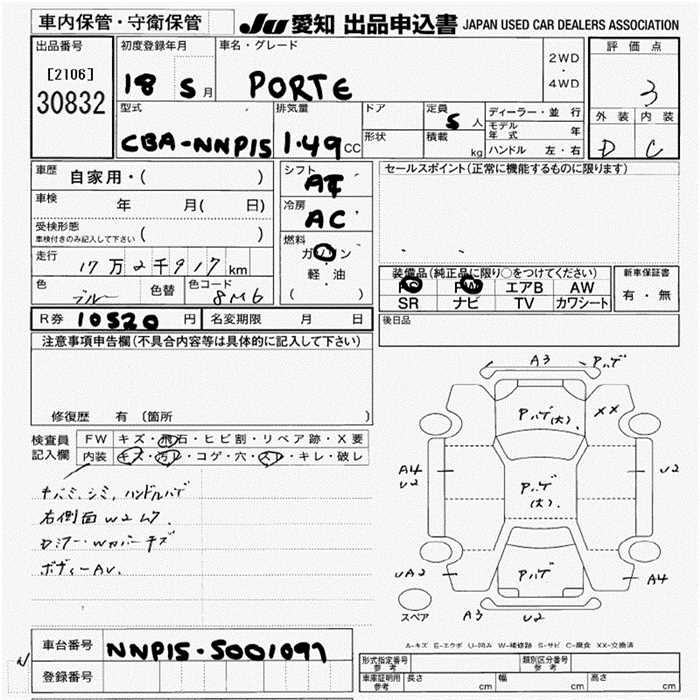 車内保管・守衛保管 JU 愛知 出品申込書 JAPAN USED CAR DEALERS ASSOCIATION
出品番号 初度登録年月 車名・グレード 2WD ・ 4WD 評価点
[2106]
30832 18 5 月 PORTE 3
型式 排気量 ドア 定員 5 人 ディーラー・並行 外装 内装
CBA-NNP15 1.49 CC 形状 積載 kg モデル年式 年 D C
ハンドル 左・右
車歴 自家用・( ) シフト AT セールスポイント(正常に機能するものに限ります)
車検 年 月( 日) 冷房 AC
受検形態 車検付きのみ記入して下さい ( )
燃料 ガソリン ・ 軽油 ( )
走行 17万2千917 km
装備品(純正品に限り○をつけてください) 新車保証書
色 ブルー 色替 色コード 8M6
PS PW エアB AW 有・無
SR ナビ TV カワシート
R券 10520 円 名変期限 月 日 後日品
注意事項申告欄(不具合内容等は具体的に記入して下さい)
修復歴 有 〔箇所
検査員記入欄 FW キズ・飛石・ヒビ割・リペア跡・X要
内装 キズ・汚レ・コゲ・穴・スレ・キレ・破レ
シミ、ハンドルハゲ
右側面W2
キズ
ボディーAU.
A3 Pハゲ
Pハゲ(大) XX
A4 U2 Pハゲ(大) U2
UA2 Pハゲ A4
スペア A3 U2
A-キズ E-エクボ U-凹み W-補修跡 S-サビ C-腐食 XX-交換済
車台番号 NNP15-5001097
登録番号
形式指定番号 参考 類別区分番号 参考
車庫証明用 参考 長さ cm 幅 cm 高さ cm